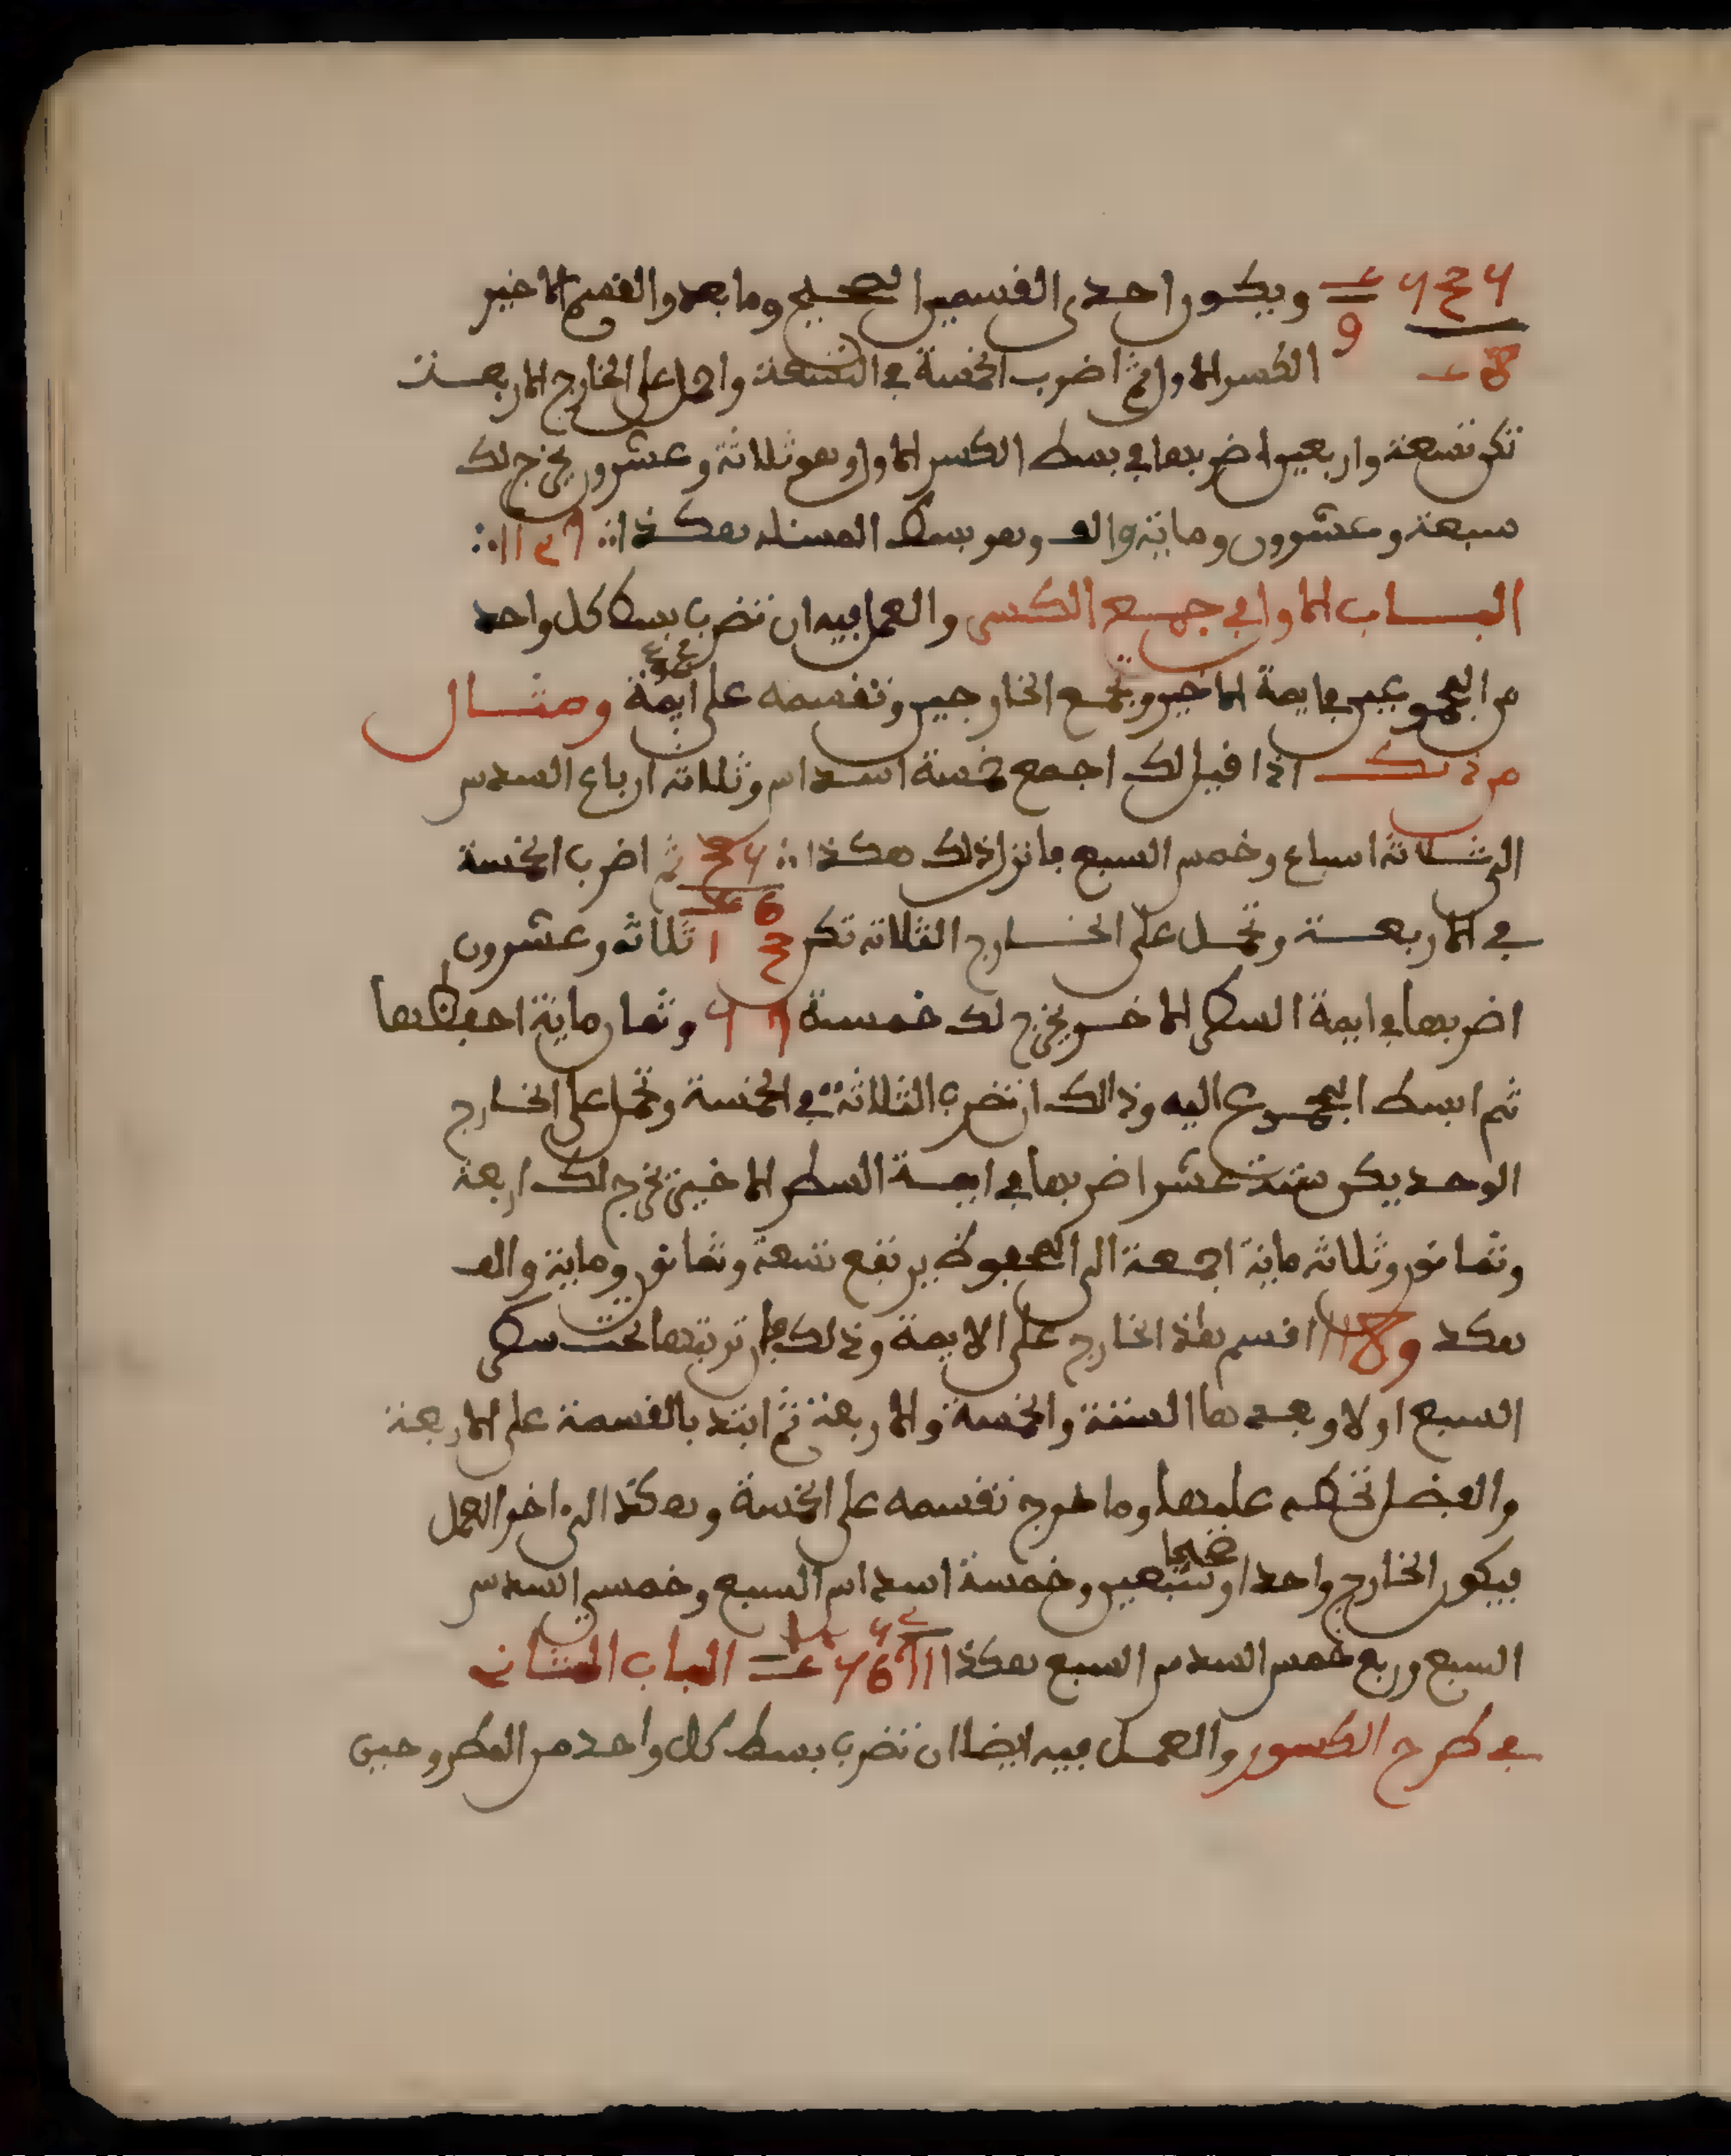 ويكون احدى القسمين الصحيح وما بعده والقسم الاخير
الكسر الاول ثم اضرب الخمسة في التسعة واحمل على الخارج الاربعة
تكن تسعة واربعين اضربها في بسط الكسر الاول وهو ثلاثة وعشرون يخرج لك
سبعة وعشرون وماية والف وهو بسط المسئلة هكذا
البـاب الاول في جمع الكسر والعمل فيه ان تضرب بسط كل واحد
من المجموعين في ايمة الاخير وتجمع الخارجين وتقسمه على ايمة ومثـال
من ذلك اذا قيل لك اجمع خمسة اسداس وثلاثة ارباع السدس
الى ثـلاثة اسباع وخمس السبع فانزل ذلك هكذا ثم اضرب الخمسة
في الاربعـة وتحمـل على الخـارج الثلاثة تكن ثلاثة وعشرون
اضربها في ايمة السطر الاخـر يخرج لك خمسة وثمان ماية احفظها
ثم ابسط المجموع اليه وذالك ان تضرب الثلاثة في الخمسة وتحمل على الخـارج
الوحد يكن ستة عشر اضربها في ايمـة السطر الاخير يخرج لك اربعة
وثمانون وثلاثة ماية اجمعه الى المحفوظ يرتفع تسعة وثمانون وماية والف
هكذ اقسم هذا الخارج على الايمة وذلك بان ترتبها تحت سطر
السبع اولا وبعدها الستة والخمسة والاربعة ثم ابتد بالقسمة على الاربعة
والفضل تحطه عليها وما خرج تقسمه على الخمسة وهكذا الى اخر العمل
فيكون الخارج واحدا صحيحا وسبعين وخمسة اسداس السبع وخمسي السدس
السبع وربع خمس السدس السبع هكذا الباب الثـاني
في طرح الكسور والعمـل فيه ايضا ان تضرب بسط كل واحد من المطروحين